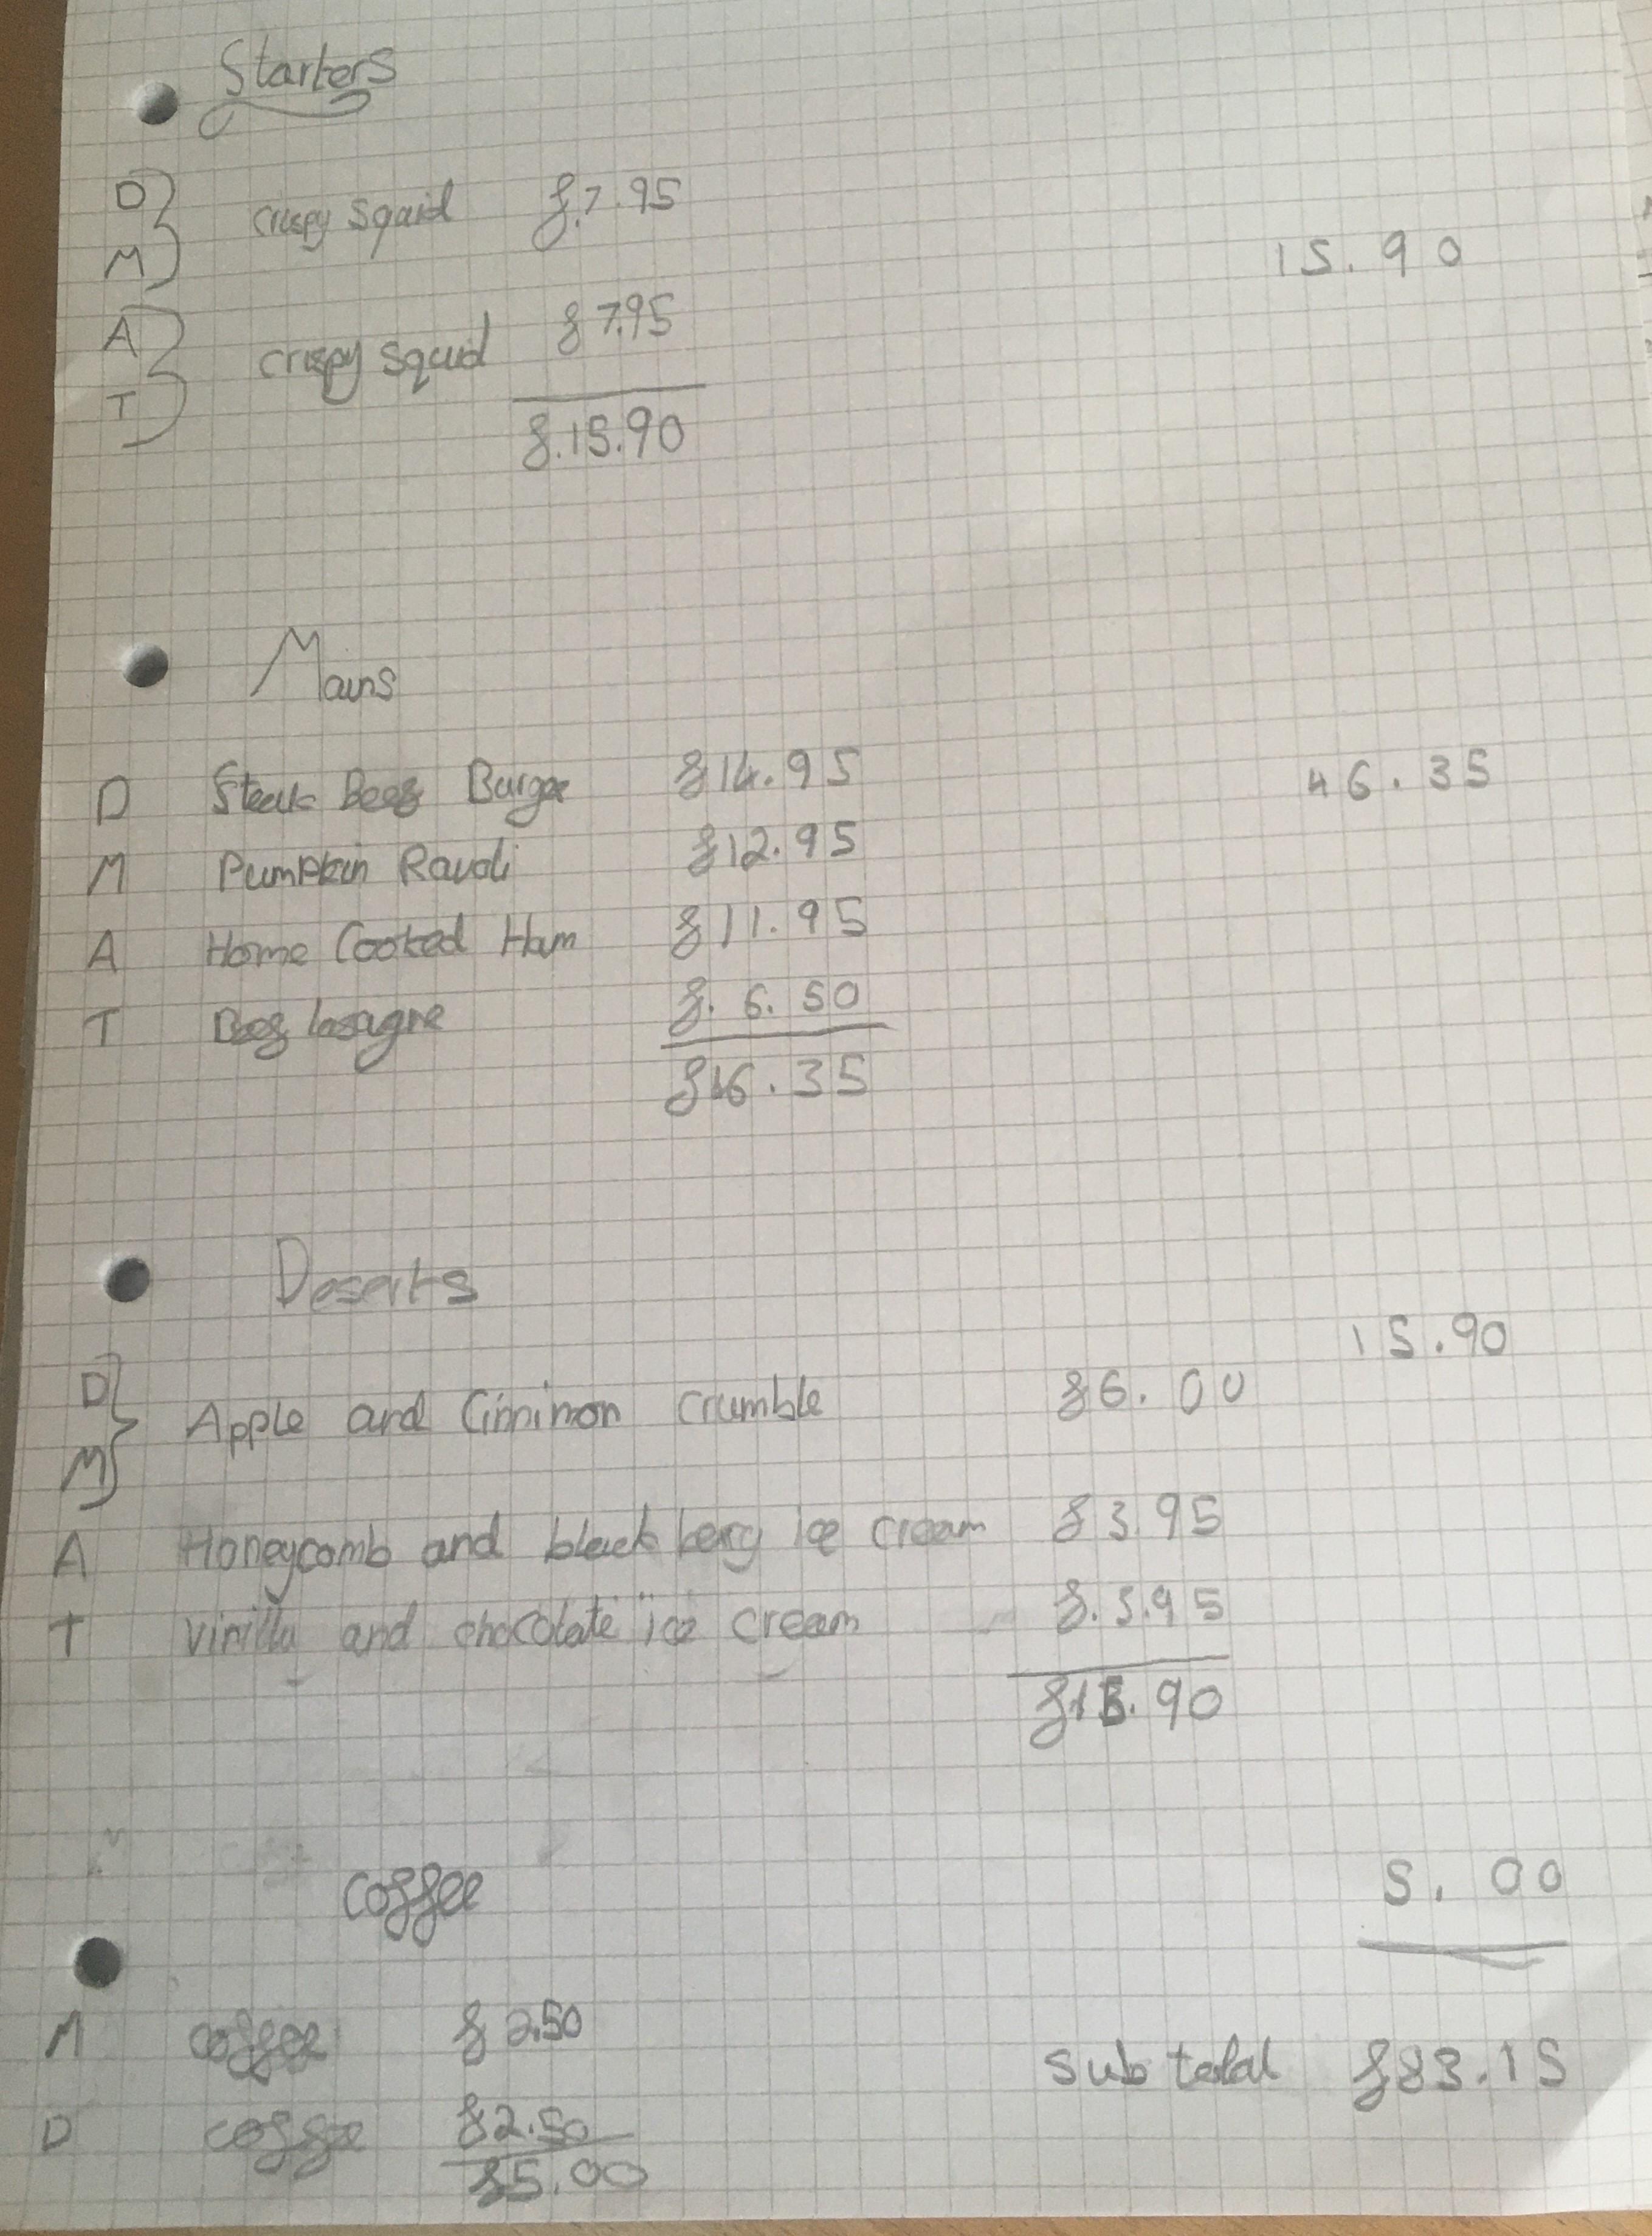 Starters
D
crispy squid £.7.95
M
15.90
A
crispy squid £7.95
T
£.15.90
Mains
D Steak Beef Burger £14.95 46.35
M Pumpkin Ravoli £12.95
A Home Cooked Ham £11.95
T Beef lasagne £.6.50
£46.35
Deserts
15.90
D
Apple and Cinnimon crumble £6.00
M
A Honeycomb and black berry ice cream £3.95
T vinilla and chocolate ice cream £.3.95
£13.90
coffee
5.00
M coffee £2.50
sub total £83.15
D coffee £2.50
£5.00